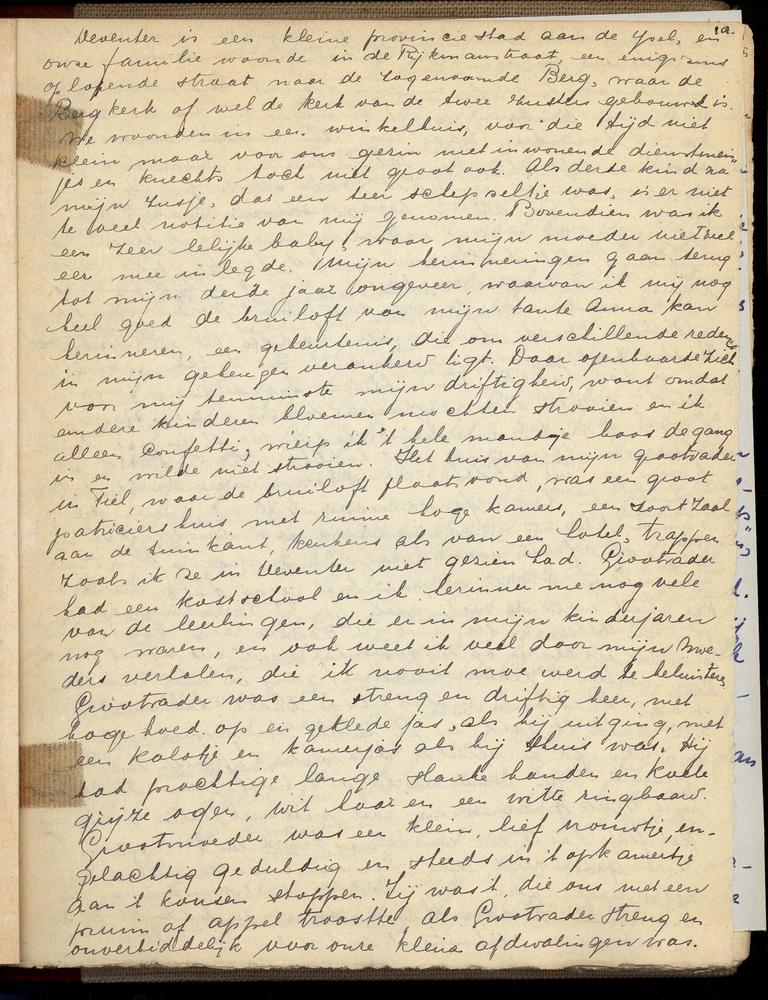 1a.
Deventer is een kleine provincie stad aan de Ysel, en
onze familie woonde in de Rijkmanstraat, een enigszins
oplopende straat naar de zogenaamde Berg, waar de
Bergkerk of wel de kerk van de twee zusters gebouwd is.
We woonden in een winkelhuis, voor die tijd niet
klein maar voor ons gezin met inwonende dienstmeis-
jes en knechts toch niet groot ook. Als derde kind na
mijn zusje, dat een teer schepseltje was, is er niet
te veel notitie van mij genomen. Bovendien was ik
een zeer lelijke baby, waar mijn moeder niet veel
eer mee inlegde. Mijn herinneringen gaan terug
tot mijn derde jaar ongeveer, waarvan ik mij nog
heel goed de bruiloft van mijn tante Anna kan
herinneren, een gebeurtenis, die om verschillende redenen
in mijn geheugen verankerd ligt. Daar openbaarde zich
voor mij tenminste mijn driftigheid, want omdat
andere kinderen bloemen mochten strooien en ik
alleen confetti, wierp ik 't hele mandje boos de gang
in en wilde niet strooien. Het huis van mijn grootvader
in Tiel, waar de bruiloft plaats vond, was een groot
patriciershuis met ruime hoge kamers, een soort zaal
aan de tuinkant, keukens als van een hotel, trappen
zoals ik ze in Deventer niet gezien had. Grootvader
had een kostschool en ik herinner me nog vele
van de leerlingen, die er in mijn kinderjaren
nog waren, en ook weet ik veel door mijn moe-
ders verhalen, die ik nooit moe werd te beluisteren.
Grootvader was een streng en driftig heer, met
hoge hoed op en geklede jas, als hij uitging, met
een kalotje en kamerjas als hij thuis was. Hij
had prachtige lange slanke handen en koele
grijze ogen, wit haar en een witte ringbaard.
Grootmoeder was een klein, lief vrouwtje, en-
gelachtig geduldig en steeds in 't opkamertje
aan 't kousen stoppen. Zij was 't, die ons met een
pruim of appel troostte, als Grootvader streng en
onverbiddelijk voor onze kleine afdwalingen was.